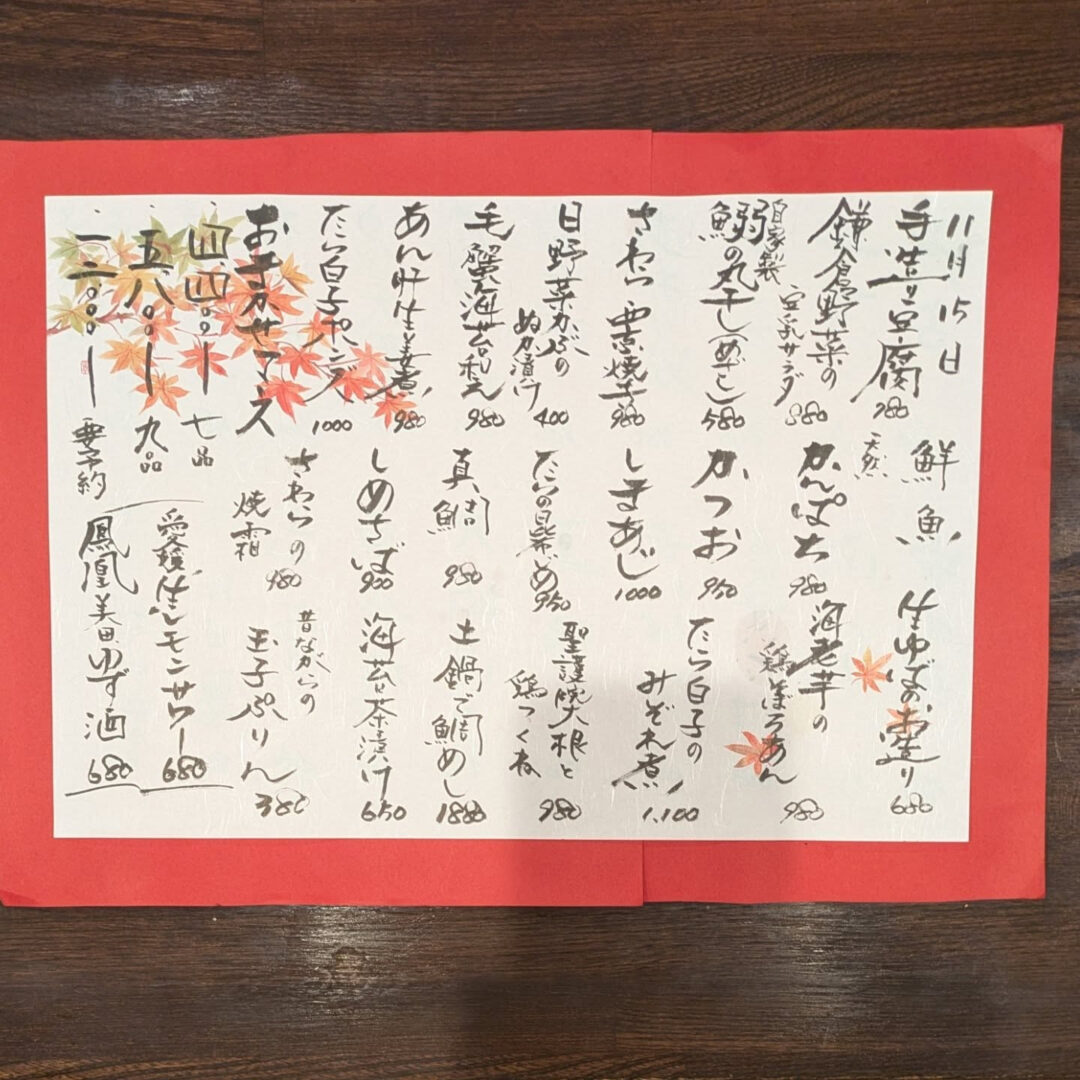 11月15日
手造り豆腐
780
鎌倉野菜の
豆乳サラダ
880
自家製
鰯の丸干し(めざし)
580
さわら西京焼き
980
日野菜かぶの
ぬか漬け
400
毛蟹海苔和え
980
あん肝生姜煮
980
たら白子ポン酢
1000
おまかせコース
・四四〇〇ー 七品
・五八〇〇ー 九品
・一二〇〇〇ー 要予約
鮮魚
天然
かんぱち
980
かつお
950
しまあじ
1000
たらの昆布〆
950
真鯛
980
しめさば
900
さわらの
焼霜
980
生ゆばのお造り
680
海老芋の
鶏そぼろあん
980
たら白子の
みぞれ煮
1,100
聖護院大根と
鶏つくね
980
土鍋で鯛めし
1880
海苔茶漬け
650
昔ながらの
玉子ぷりん
380
愛媛生レモンサワー
680
鳳凰美田ゆず酒
680